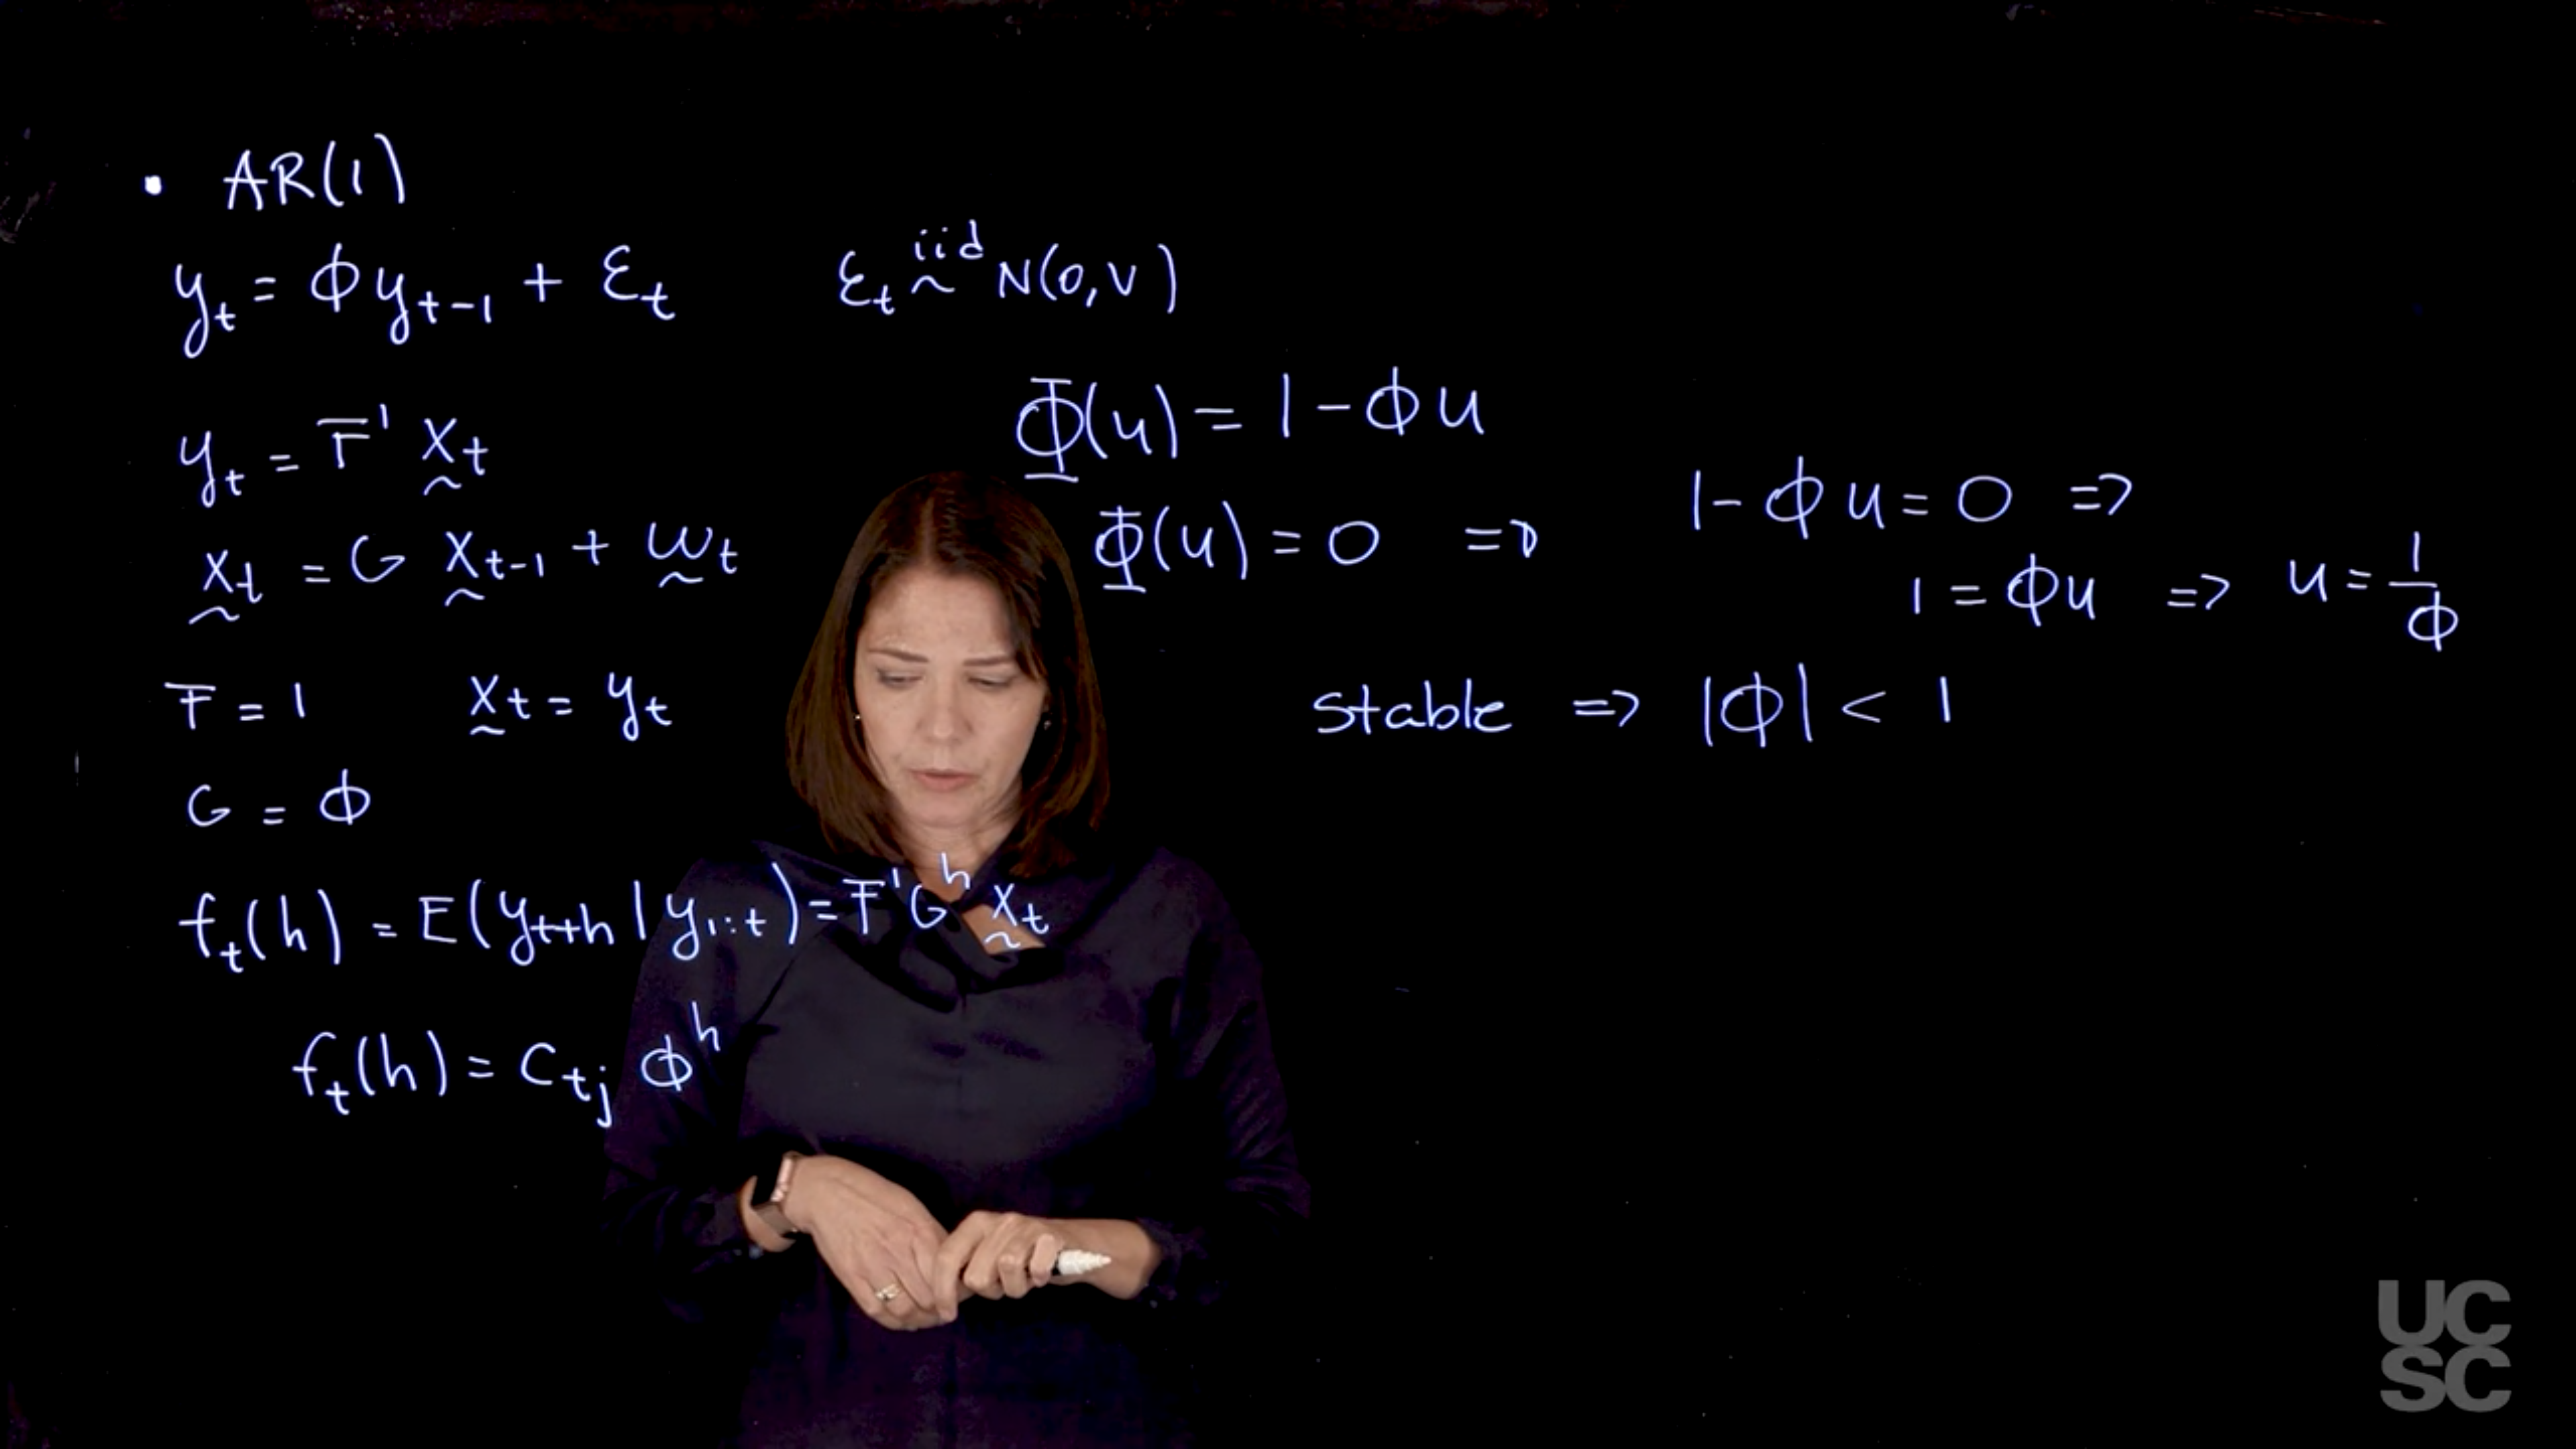 • AR(1)
y_t = ϕ y_{t-1} + ε_t
ε_t ~^{iid} N(0, v)
y_t = F' x̰_t
x̰_t = G x̰_{t-1} + w̰_t
F = 1
x̰_t = y_t
G = ϕ
f_t(h) = E(y_{t+h} | y_{1:t}) = F' G^h x̰_t
f_t(h) = c_{tj} ϕ^h
Φ(u) = 1 - ϕ u
Φ(u) = 0 =>
1 - ϕ u = 0 =>
1 = ϕ u => u = 1/ϕ
stable => |ϕ| < 1
UC
SC